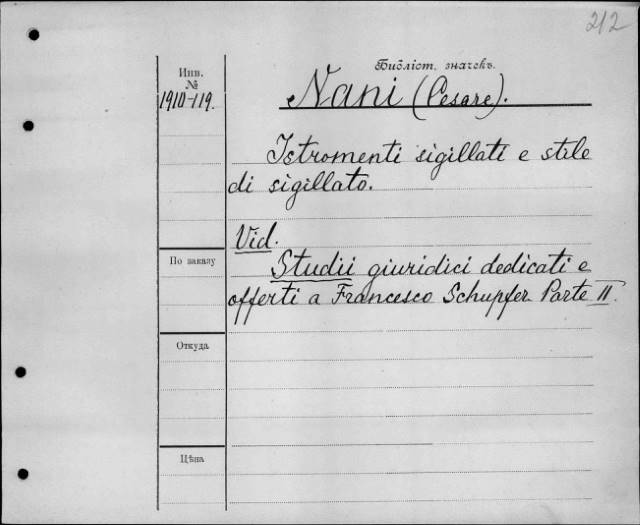 212
Библіот. значекъ.
Инв.
№
1910-119.
Nani (Cesare).
Istromenti sigillati e stile
di sigillato.
Vid.
По заказу
Studii giuridici dedicati e
offerti a Francesco Schupfer Parte II
Откуда
Цѣна